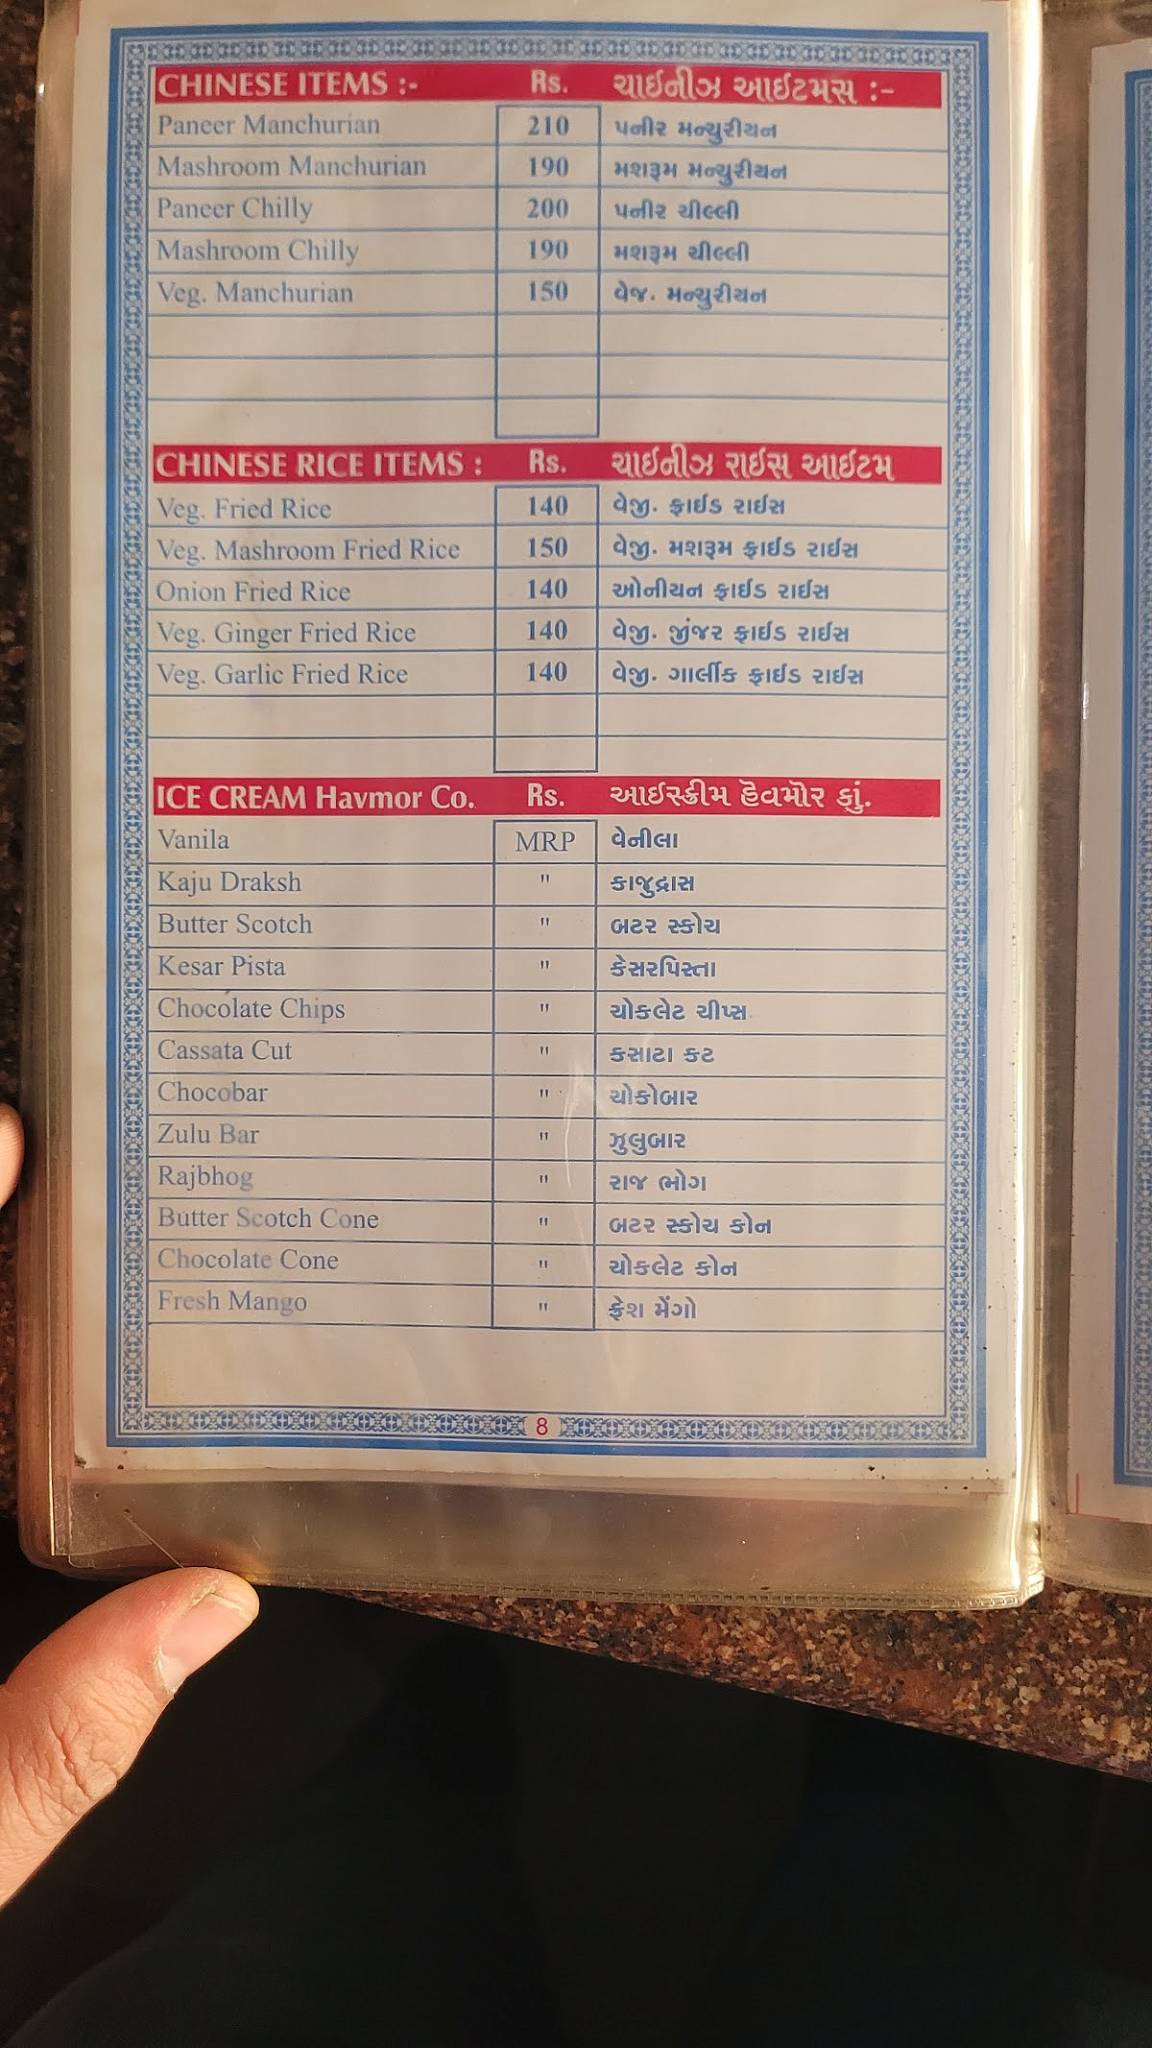 CHINESE ITEMS :- Rs. ચાઇનીઝ આઇટમસ :-
Paneer Manchurian 210 પનીર મન્ચુરીયન
Mashroom Manchurian 190 મશરૂમ મન્ચુરીયન
Paneer Chilly 200 પનીર ચીલ્લી
Mashroom Chilly 190 મશરૂમ ચીલ્લી
Veg. Manchurian 150 વેજ. મન્ચુરીયન
CHINESE RICE ITEMS : Rs. ચાઇનીઝ રાઇસ આઇટમ
Veg. Fried Rice 140 વેજી. ફ્રાઈડ રાઈસ
Veg. Mashroom Fried Rice 150 વેજી. મશરૂમ ફ્રાઈડ રાઈસ
Onion Fried Rice 140 ઓનીયન ફ્રાઈડ રાઈસ
Veg. Ginger Fried Rice 140 વેજી. જીંજર ફ્રાઈડ રાઈસ
Veg. Garlic Fried Rice 140 વેજી. ગાર્લીક ફ્રાઈડ રાઈસ
ICE CREAM Havmor Co. Rs. આઇસ્ક્રીમ હેવમોર કું.
Vanila MRP વેનીલા
Kaju Draksh " કાજુદ્રાસ
Butter Scotch " બટર સ્કોચ
Kesar Pista " કેસરપિસ્તા
Chocolate Chips " ચોકલેટ ચીપ્સ
Cassata Cut " કસાટા કટ
Chocobar " ચોકોબાર
Zulu Bar " ઝુલુબાર
Rajbhog " રાજ ભોગ
Butter Scotch Cone " બટર સ્કોચ કોન
Chocolate Cone " ચોકલેટ કોન
Fresh Mango " ફ્રેશ મેંગો
8